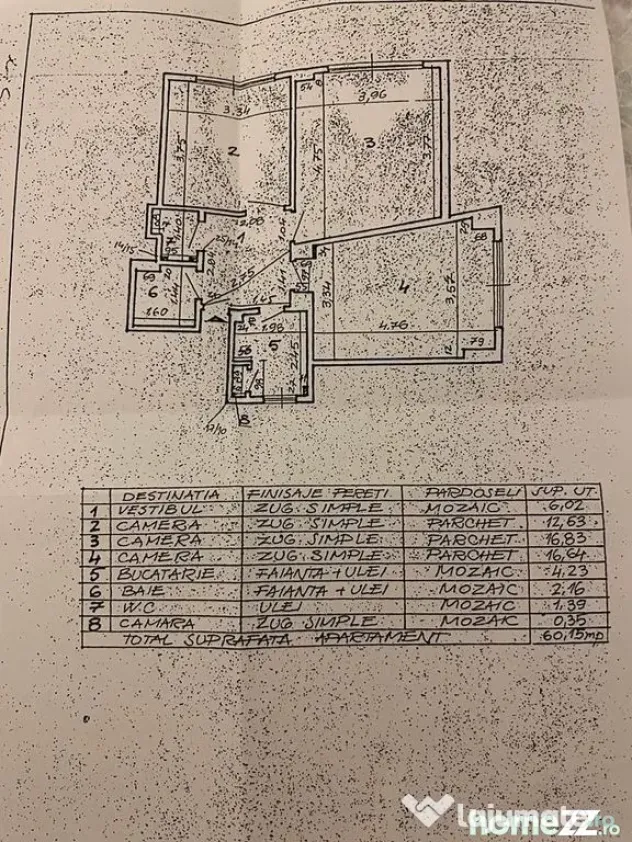 3.34
54
3,96
3,75
2
4.75
3
3,77
2.08
1
1.60
6
69
14/15
25/15
2.45
1.45
1.98
5
2.45
56
22
17/10
8
3.34
4
3.57
4.76
68
79
12
DESTINATIA FINISAJE PERETI PARDOSELI SUP. UT.
1 VESTIBUL ZUG SIMPLE MOZAIC 6,02
2 CAMERA ZUG SIMPLE PARCHET 12,53
3 CAMERA ZUG SIMPLE PARCHET 16,83
4 CAMERA ZUG SIMPLE PARCHET 16,64
5 BUCATARIE FAIANTA + ULEI MOZAIC 4,23
6 BAIE FAIANTA + ULEI MOZAIC 2,16
7 W.C ULEI MOZAIC 1,39
8 CAMARA ZUG SIMPLE MOZAIC 0,35
TOTAL SUPRAFATA APARTAMENT 60,15mp
homezz.ro